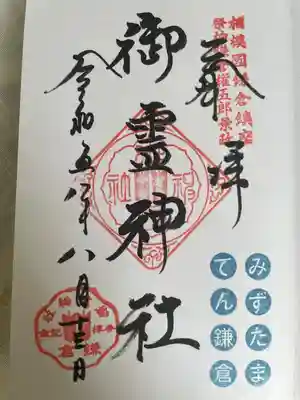 相模國鎌倉鎮座
祭神鎌倉權五郎景政
奉拝
御霊神社
令和五年八月十三日
みずたま
てん鎌倉